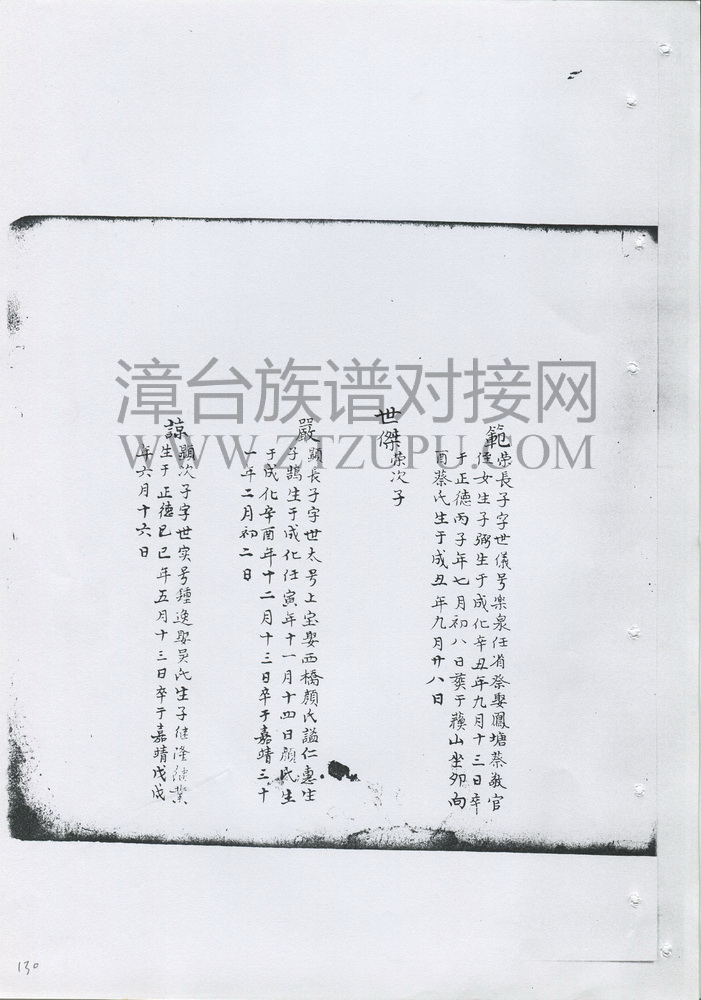 範 荣長子字世儀号楽泉任省祭娶鳳塘蔡敬官
侄女生子弼生于成化辛丑年九月十三日卒
于正德丙子年七月初八日葬于蘋山坐卯向
酉蔡氏生于成丑年九月廿八日
世傑 荣次子
嚴 顕長子字世太号上宝娶西橋顔氏謚仁惠生
子鵠生于成化任寅年十一月十四日顔氏生
于成化辛酉年十二月十三日卒于嘉靖三十
一年二月初二日
諒 顕次子字世实号鍾逸娶吴氏生子継隆継業
生于正德己巳年五月十三日卒于嘉靖戊戌
年六月十六日
漳台族谱对接网
WWW.ZTZUPU.COM
130